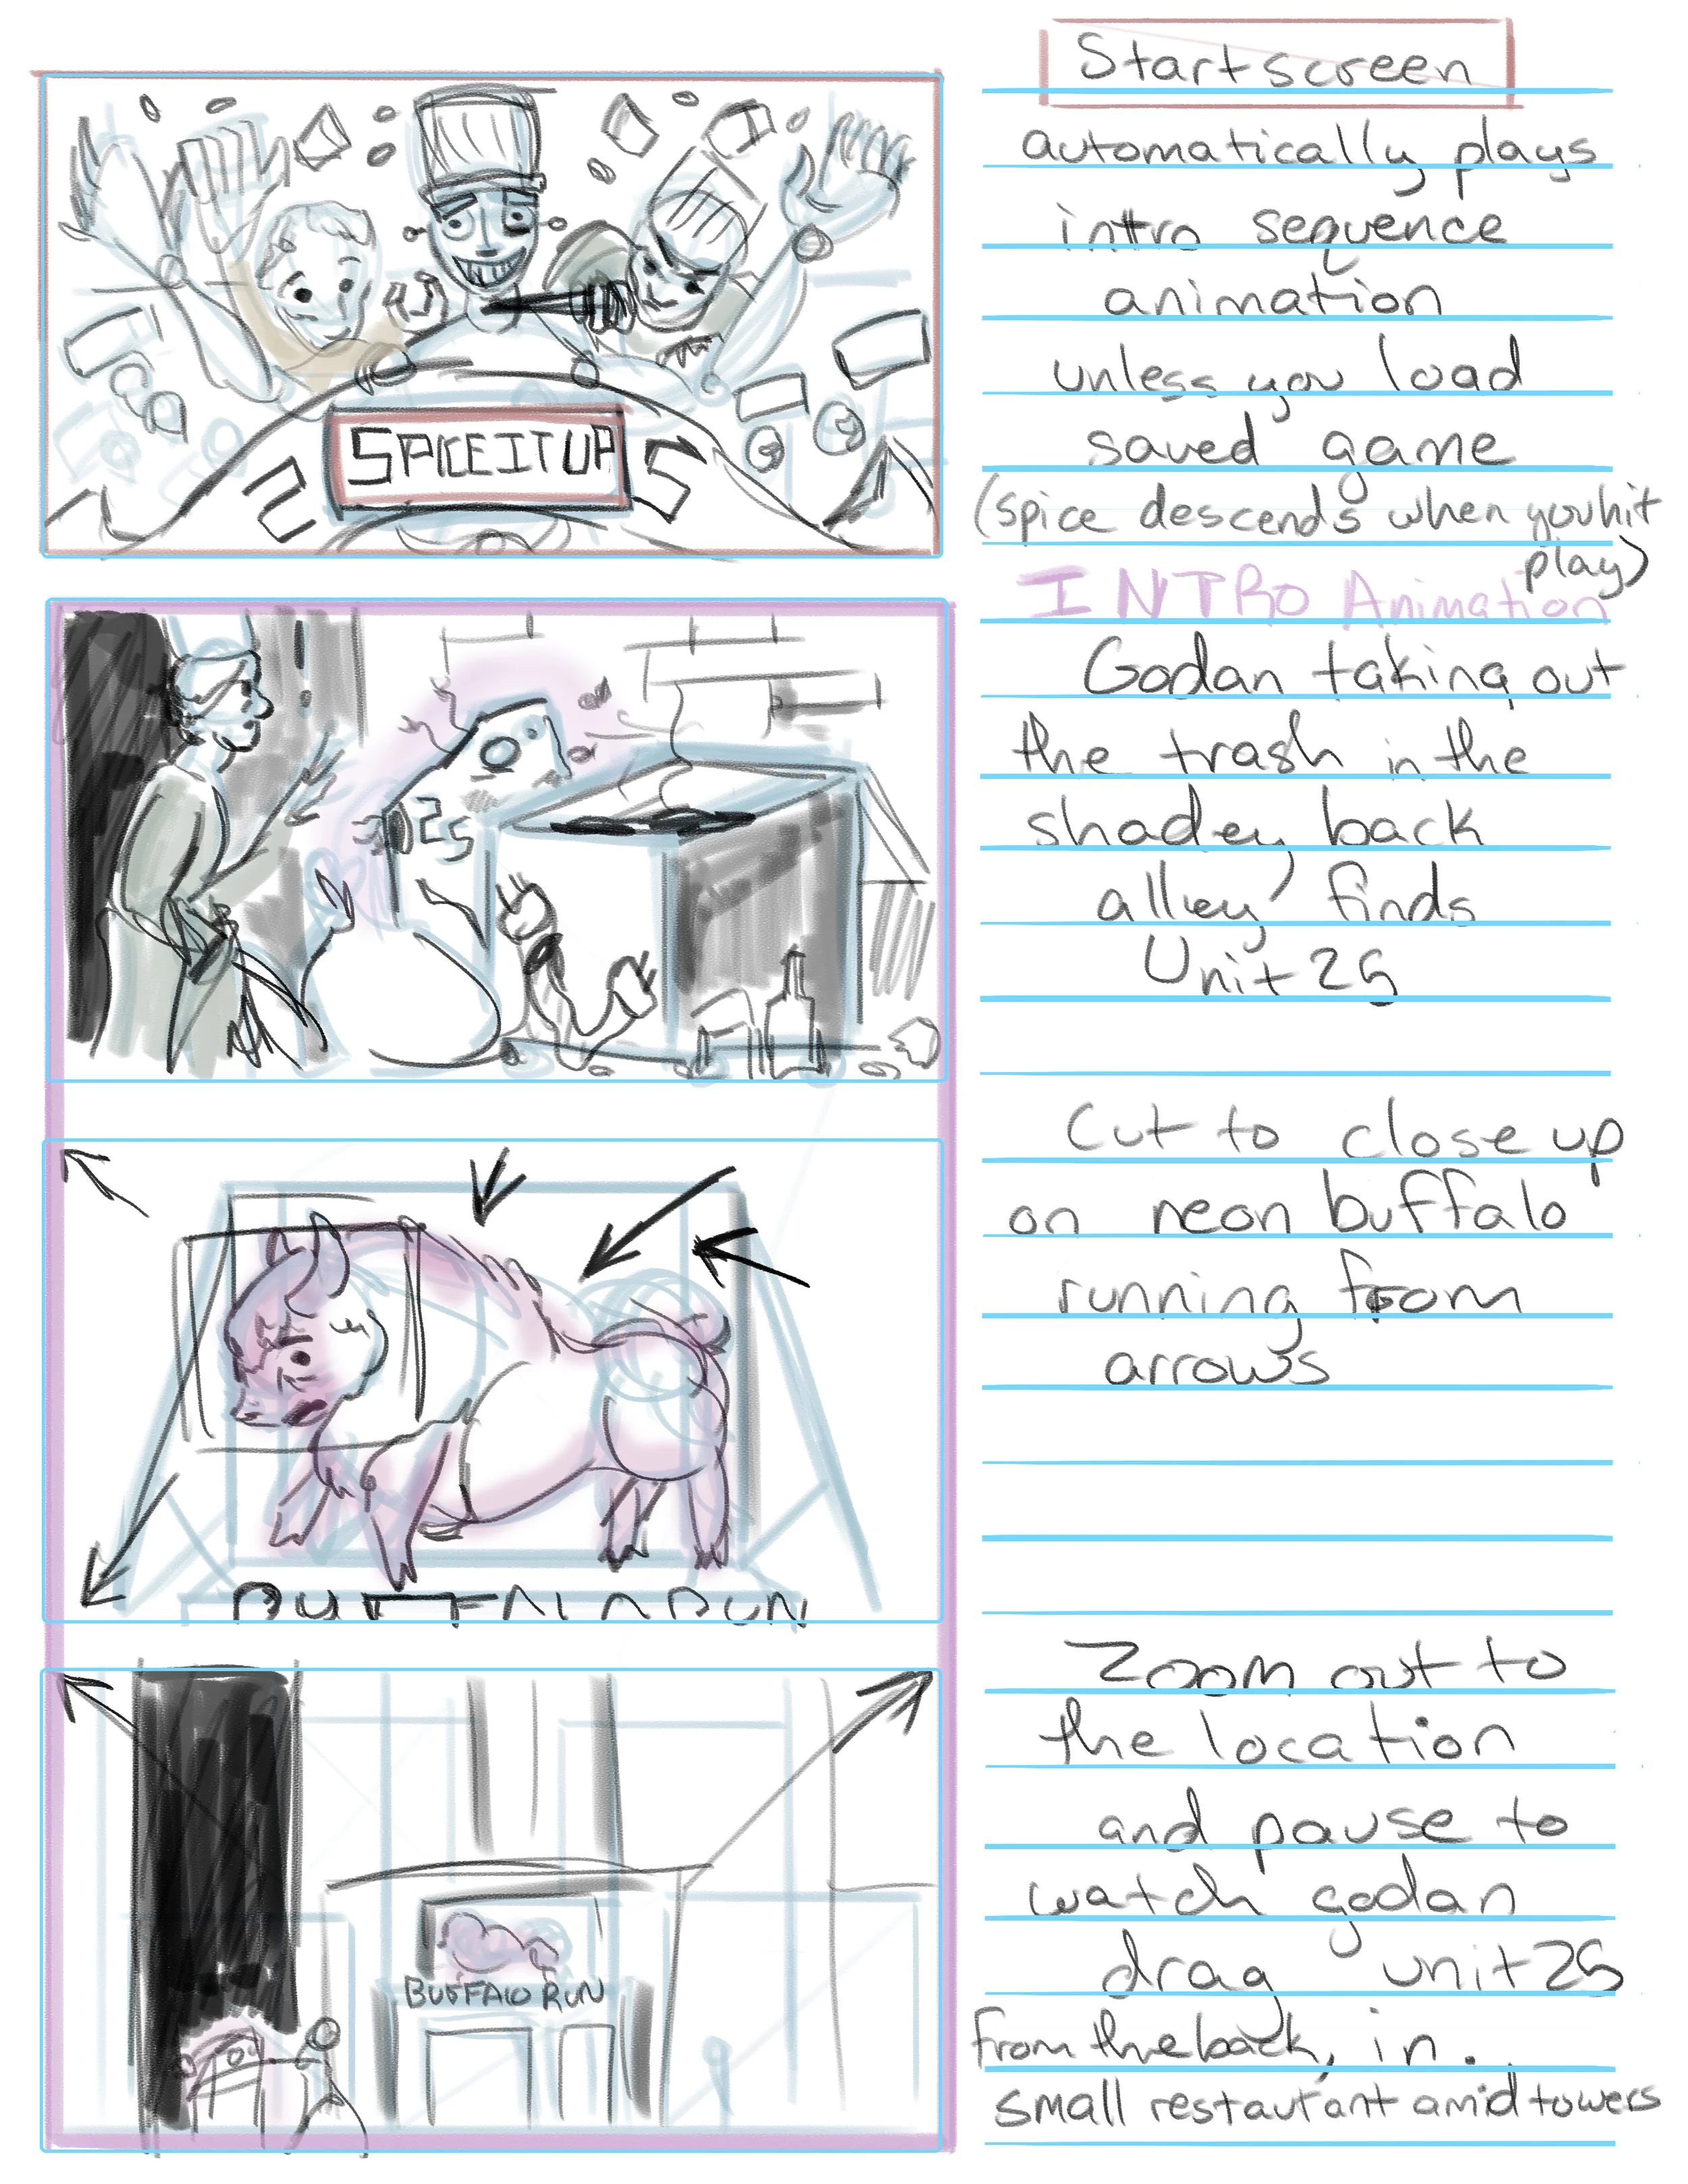 Startscreen
automatically plays
intro sequence
animation
unless you load
saved game
(spice descends when you hit
play)
SPICE IT UP
INTRO Animation
Godan taking out
the trash in the
shadey back
alley finds
Unit 25
25
Cut to close up
on neon buffalo
running from
arrows
BUFFALO RUN
Zoom out to
the location
and pause to
watch godan
drag unit 25
from the back, in.
small restaurant amid towers
BUFFALO RUN